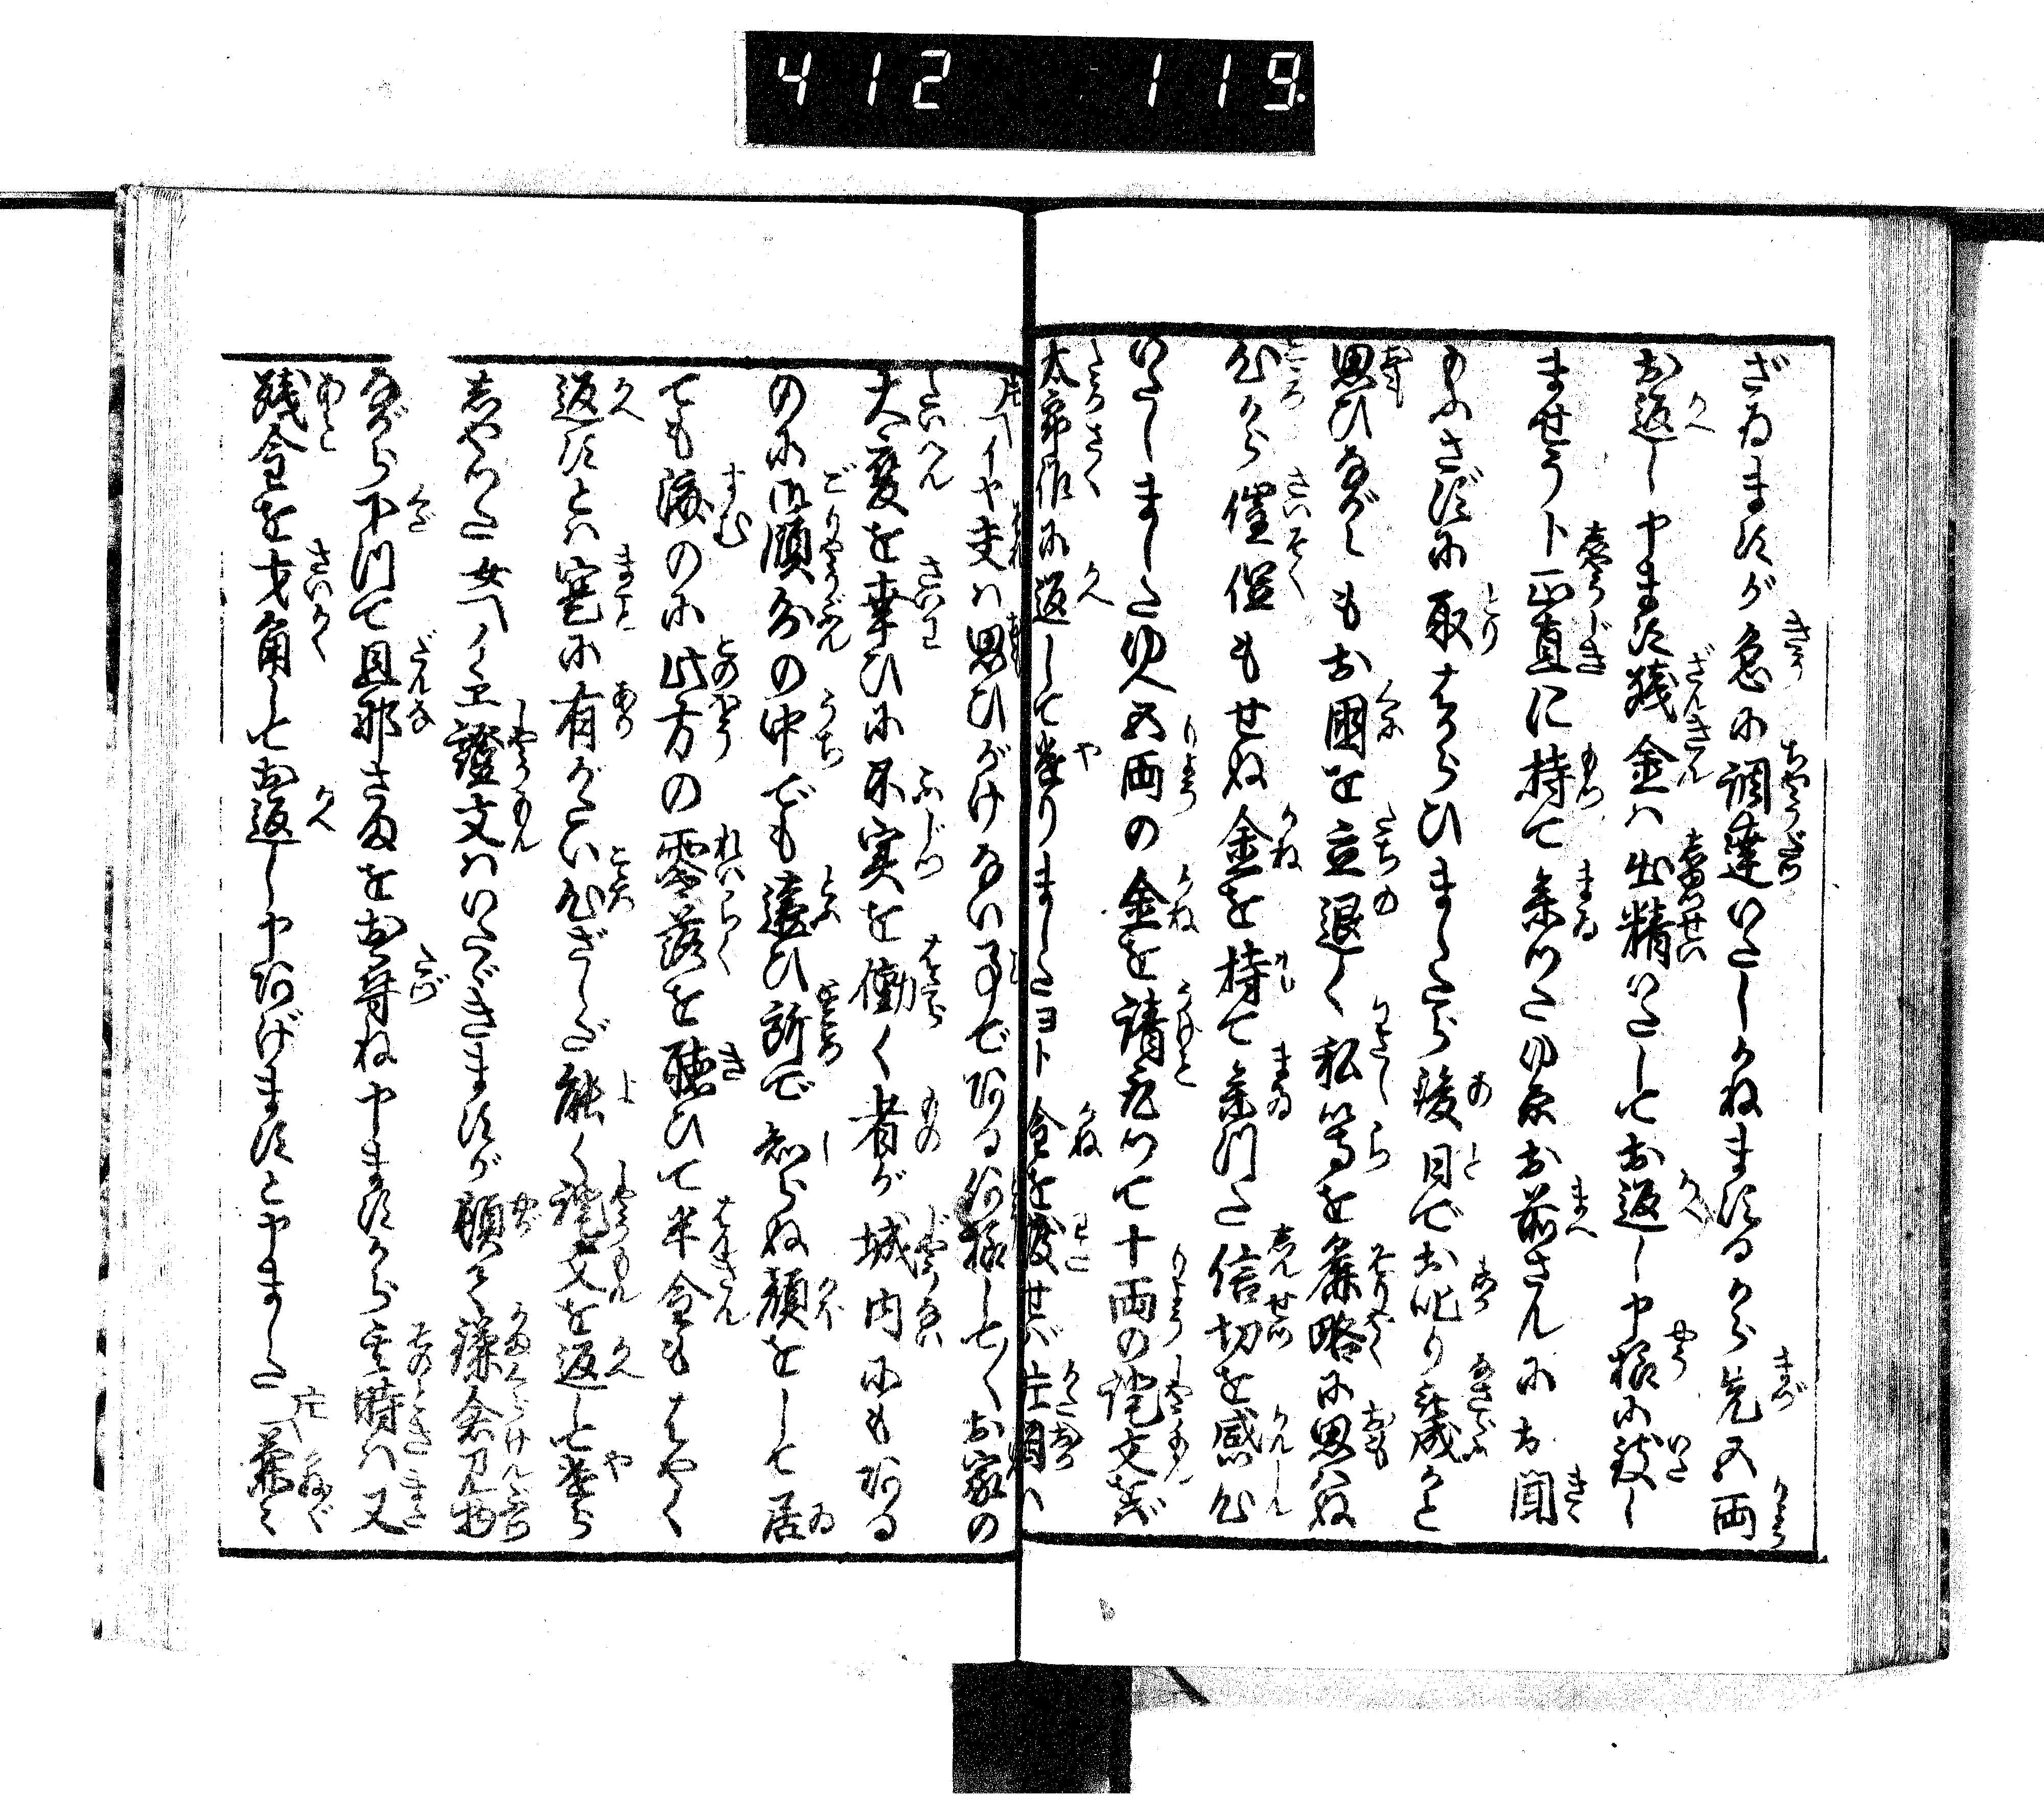 412 119
ざゐます が急に調達いたしかねまするから先五両
お返し申ます残金ハ出精いたしてお返し申様に致し
ませうト正直に持て参つたゆゑお前さんにお聞
申さずに取はからひましたら後日でお叱り被成かと
思ひながらもお国を立退く私等を麁略に思ハぬ
心から催促もせぬ金を持て参つた信切を感心
いたしましたゆへ五両の金を請取つて十両の証文を
太郎作に返して遣りましたヨト金を渡せバ庄
庄へイヤ夫ハ思ひがけない事であるお家の
大変を幸ひに不実を働く者が城内にもある
のに御領分の中でも遠ひ所で知らぬ顔をして居
ても済のに此方の零落を聴ひて半金もはやく
返すとハ寔に有がたい心ざしだ能く証文を返して遣ら
しやつた女へイヽエ證文ハいたゞきますが頓て鎌倉見物
ながら下つて旦那さまをお尋ね申ますから其時ハ又
残金を才角してお返し申あげますと申ました